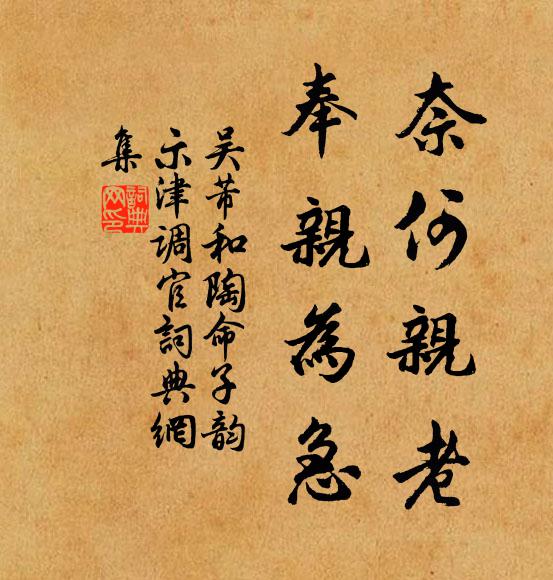 奈何親老
奉親為急
吴芾和陶命子韵
示津调官詞典網
集
詞典網印